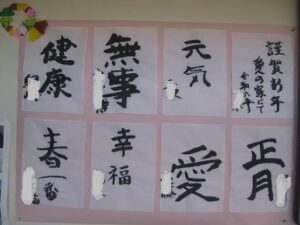 謹賀新年
愛の家にて
令和六年
元気
無事
健康
正月
愛
幸福
春一番